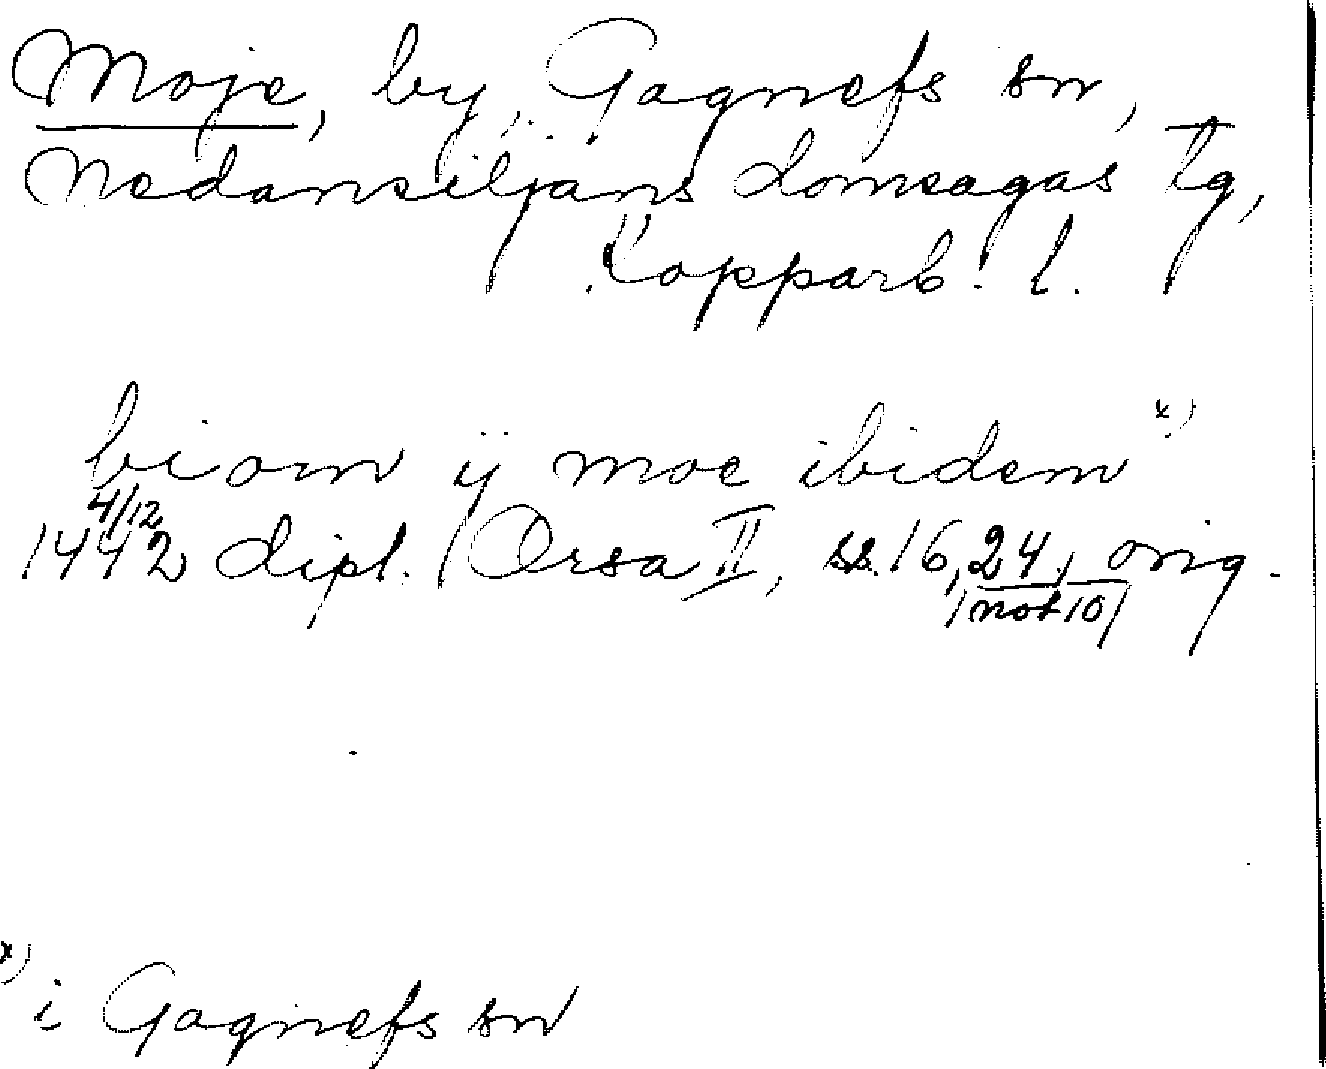 Moje, by, Gagnefs sn,
Nedansiljans domsagas tg,
Kopparb. l.
biom ij moe ibidem x)
1442 4/12 dipl. (Orsa II, ss. 16, 24, orig.
(not 10)
x) i Gagnefs sn